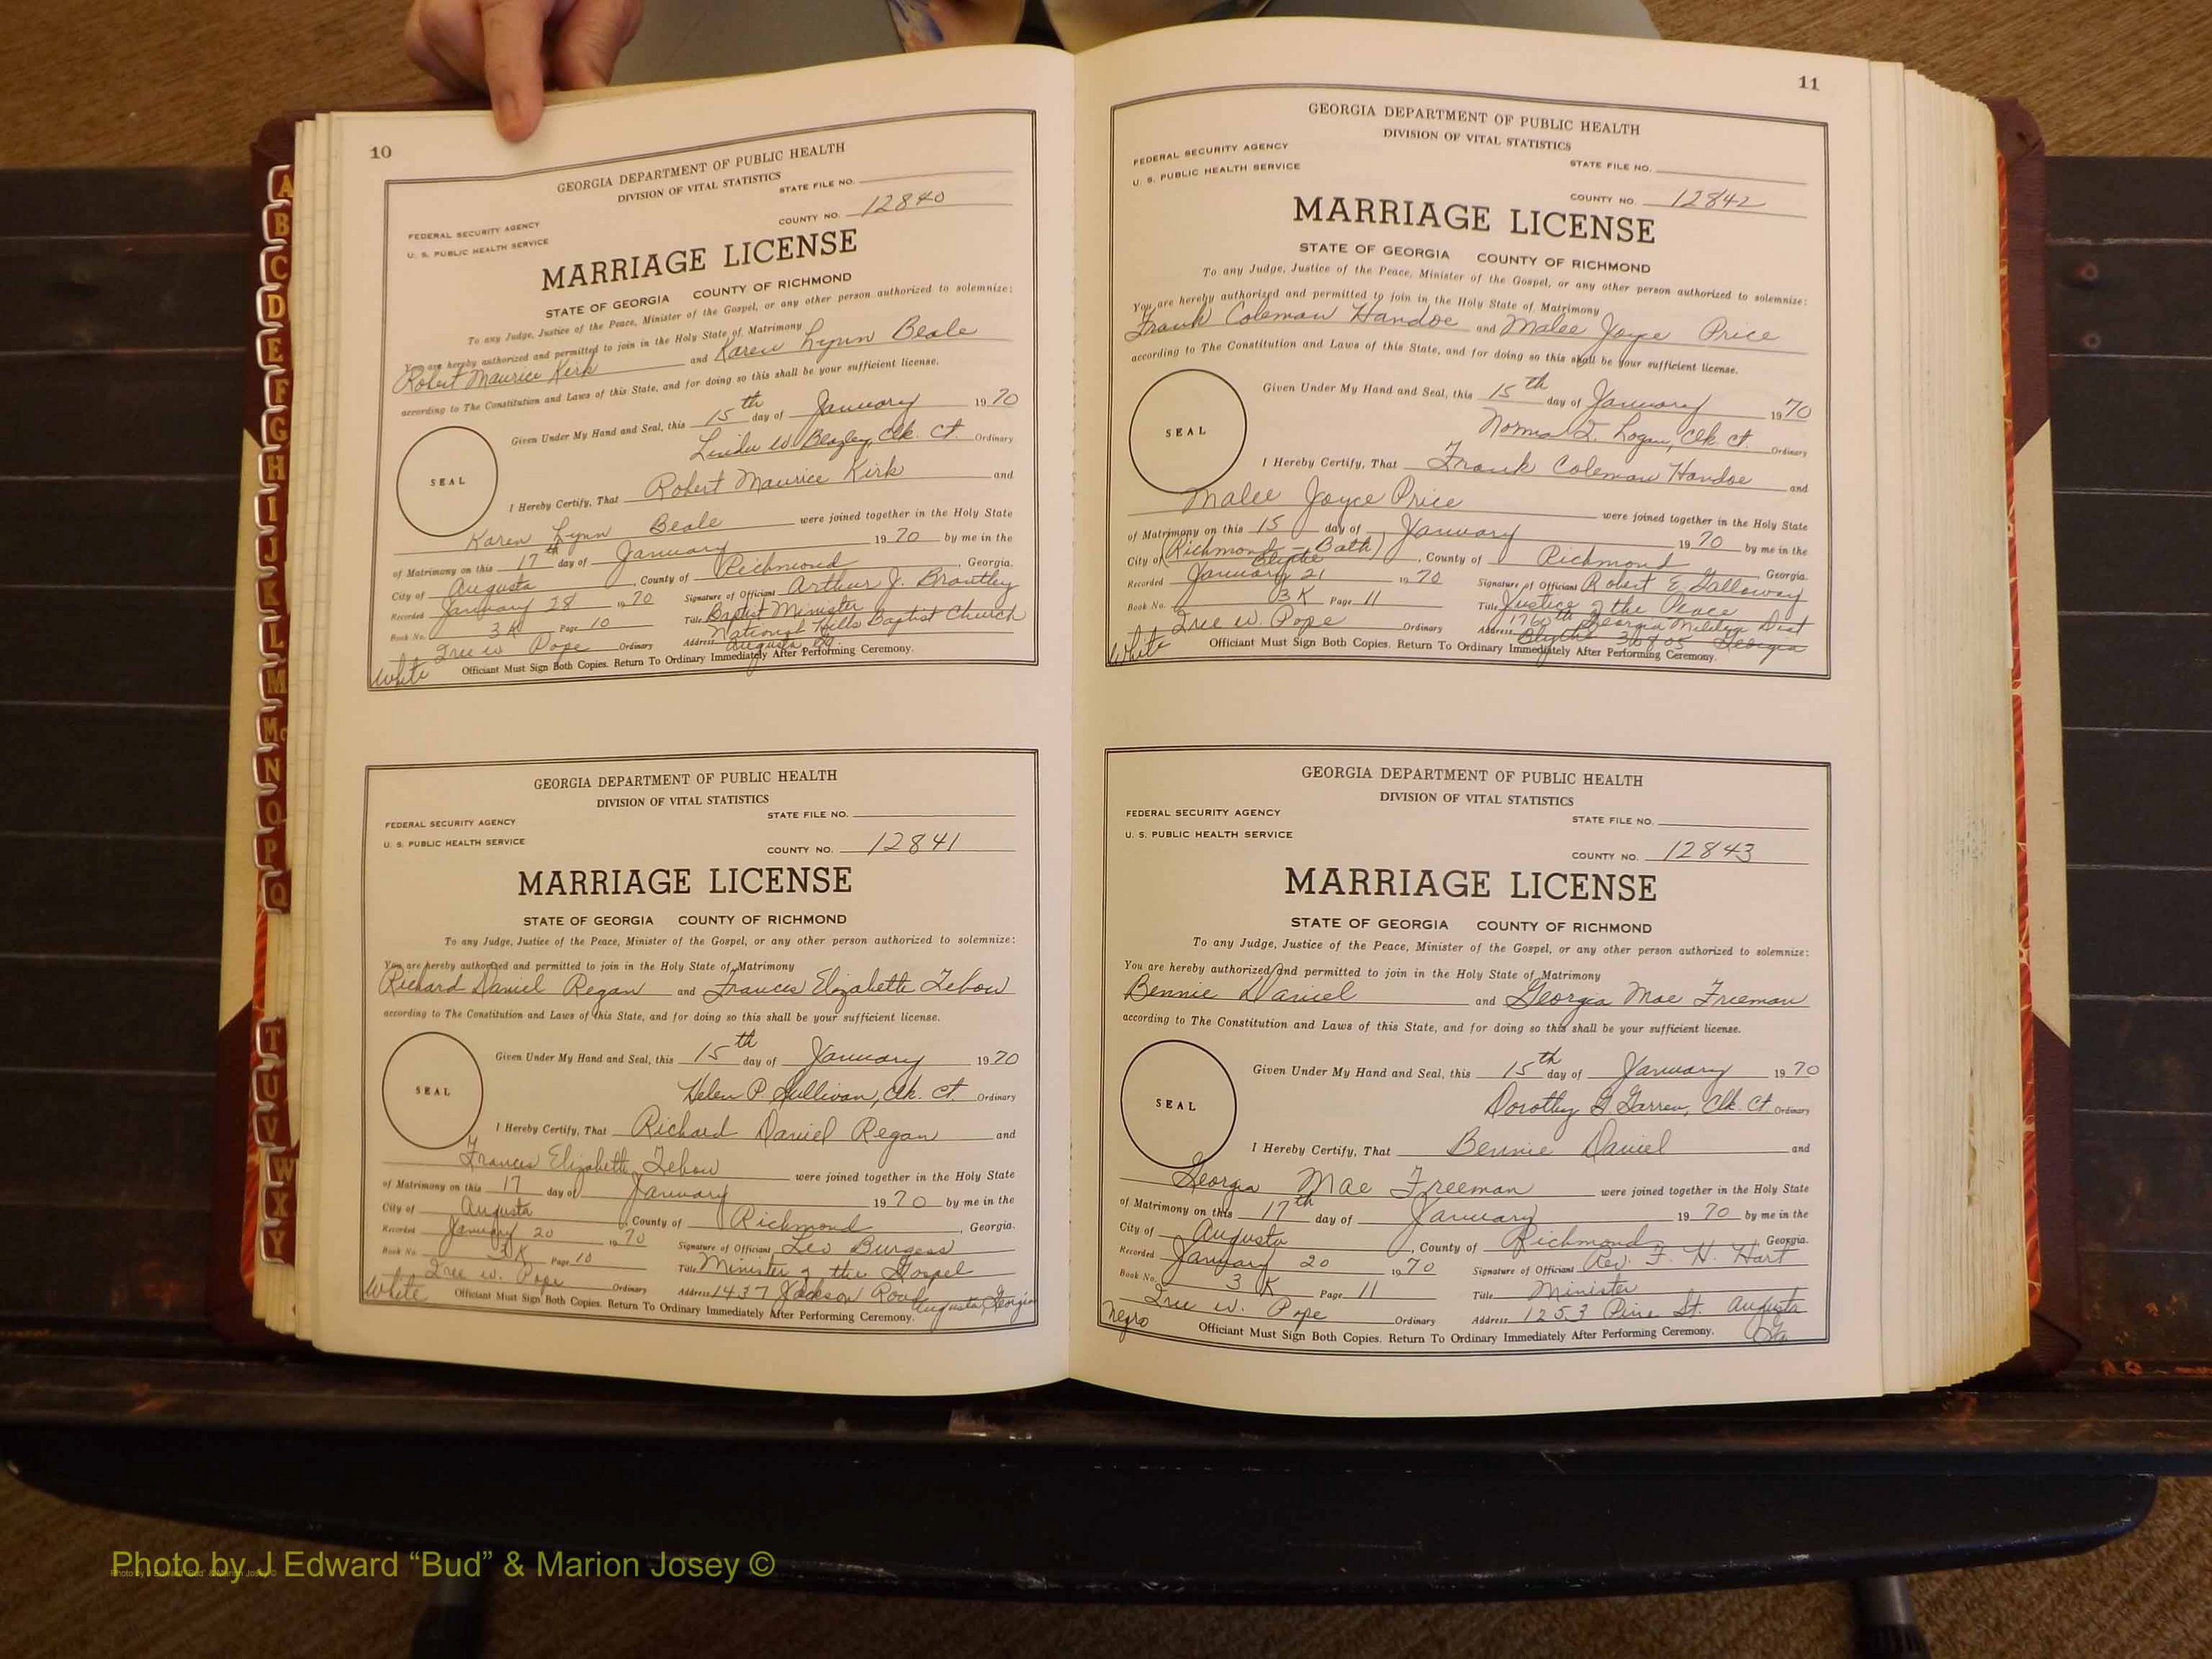 10
GEORGIA DEPARTMENT OF PUBLIC HEALTH
DIVISION OF VITAL STATISTICS
STATE FILE NO.
FEDERAL SECURITY AGENCY
U. S. PUBLIC HEALTH SERVICE
COUNTY NO. 12840
MARRIAGE LICENSE
STATE OF GEORGIA COUNTY OF RICHMOND
To any Judge, Justice of the Peace, Minister of the Gospel, or any other person authorized to solemnize:
You are hereby authorized and permitted to join in the Holy State of Matrimony
Robert Maurice Kirk and Karen Lynn Beale
according to The Constitution and Laws of this State, and for doing so this shall be your sufficient license.
Given Under My Hand and Seal, this 15th day of January 1970
Linda W. Beazley, Clk. Ct. Ordinary
SEAL
I Hereby Certify, That Robert Maurice Kirk and
Karen Lynn Beale were joined together in the Holy State
of Matrimony on this 17th day of January 1970 by me in the
City of Augusta, County of Richmond, Georgia.
Recorded January 28 1970 Signature of Officiant Arthur J. Brantley
Book No. 3K Page 10 Title Baptist Minister
Address National Hills Baptist Church
Augusta, Ga.
Tree W. Pope Ordinary
White Officiant Must Sign Both Copies. Return To Ordinary Immediately After Performing Ceremony.
GEORGIA DEPARTMENT OF PUBLIC HEALTH
DIVISION OF VITAL STATISTICS
STATE FILE NO.
FEDERAL SECURITY AGENCY
U. S. PUBLIC HEALTH SERVICE
COUNTY NO. 12841
MARRIAGE LICENSE
STATE OF GEORGIA COUNTY OF RICHMOND
To any Judge, Justice of the Peace, Minister of the Gospel, or any other person authorized to solemnize:
You are hereby authorized and permitted to join in the Holy State of Matrimony
Richard Daniel Regan and Frances Elizabeth Tebow
according to The Constitution and Laws of this State, and for doing so this shall be your sufficient license.
Given Under My Hand and Seal, this 15th day of January 1970
Helen P. Sullivan, Clk. Ct. Ordinary
SEAL
I Hereby Certify, That Richard Daniel Regan and
Frances Elizabeth Tebow were joined together in the Holy State
of Matrimony on this 17 day of January 1970 by me in the
City of Augusta, County of Richmond, Georgia.
Recorded January 20 1970 Signature of Officiant Leo Burgess
Book No. 3K Page 10 Title Minister of the Gospel
Tree W. Pope Ordinary Address 1437 Jackson Road
Augusta, Georgia
White Officiant Must Sign Both Copies. Return To Ordinary Immediately After Performing Ceremony.
11
GEORGIA DEPARTMENT OF PUBLIC HEALTH
DIVISION OF VITAL STATISTICS
FEDERAL SECURITY AGENCY
STATE FILE NO.
U. S. PUBLIC HEALTH SERVICE
COUNTY NO. 12842
MARRIAGE LICENSE
STATE OF GEORGIA COUNTY OF RICHMOND
To any Judge, Justice of the Peace, Minister of the Gospel, or any other person authorized to solemnize:
You are hereby authorized and permitted to join in the Holy State of Matrimony
Frank Coleman Handoe and Malee Joyce Price
according to The Constitution and Laws of this State, and for doing so this shall be your sufficient license.
Given Under My Hand and Seal, this 15th day of January 1970
Norma T. Logan, Clk. Ct. Ordinary
SEAL
I Hereby Certify, That Frank Coleman Handoe and
Malee Joyce Price were joined together in the Holy State
of Matrimony on this 15 day of January 1970 by me in the
City of (Richmond - Bath) Blythe, County of Richmond Georgia.
Recorded January 21 1970 Signature of Officiant Robert E. Galloway
Book No. 3K Page 11 Title Justice of the Peace
1760th Georgia Militia Dist
Tree W. Pope Ordinary Address Blythe 30805 Georgia
White Officiant Must Sign Both Copies. Return To Ordinary Immediately After Performing Ceremony.
GEORGIA DEPARTMENT OF PUBLIC HEALTH
DIVISION OF VITAL STATISTICS
FEDERAL SECURITY AGENCY
STATE FILE NO.
U. S. PUBLIC HEALTH SERVICE
COUNTY NO. 12843
MARRIAGE LICENSE
STATE OF GEORGIA COUNTY OF RICHMOND
To any Judge, Justice of the Peace, Minister of the Gospel, or any other person authorized to solemnize:
You are hereby authorized and permitted to join in the Holy State of Matrimony
Bennie Daniel and Georgia Mae Freeman
according to The Constitution and Laws of this State, and for doing so this shall be your sufficient license.
Given Under My Hand and Seal, this 15th day of January 1970
Dorothy G. Garren, Clk. Ct. Ordinary
SEAL
I Hereby Certify, That Bennie Daniel and
Georgia Mae Freeman were joined together in the Holy State
of Matrimony on this 17th day of January 1970 by me in the
City of Augusta, County of Richmond, Georgia.
Recorded January 20 1970 Signature of Officiant Rev. F. H. Hart
Book No. 3K Page 11 Title Minister
Tree W. Pope Ordinary Address 1253 Pine St. Augusta
Ga
Negro Officiant Must Sign Both Copies. Return To Ordinary Immediately After Performing Ceremony.
A
B
C
D
E
F
G
H
I
J
K
L
M
Mc
N
O
P
Q
T
U
V
W
X
Y
Photo by J Edward “Bud” & Marion Josey ©
Photo by J Edward “Bud” & Marion Josey ©